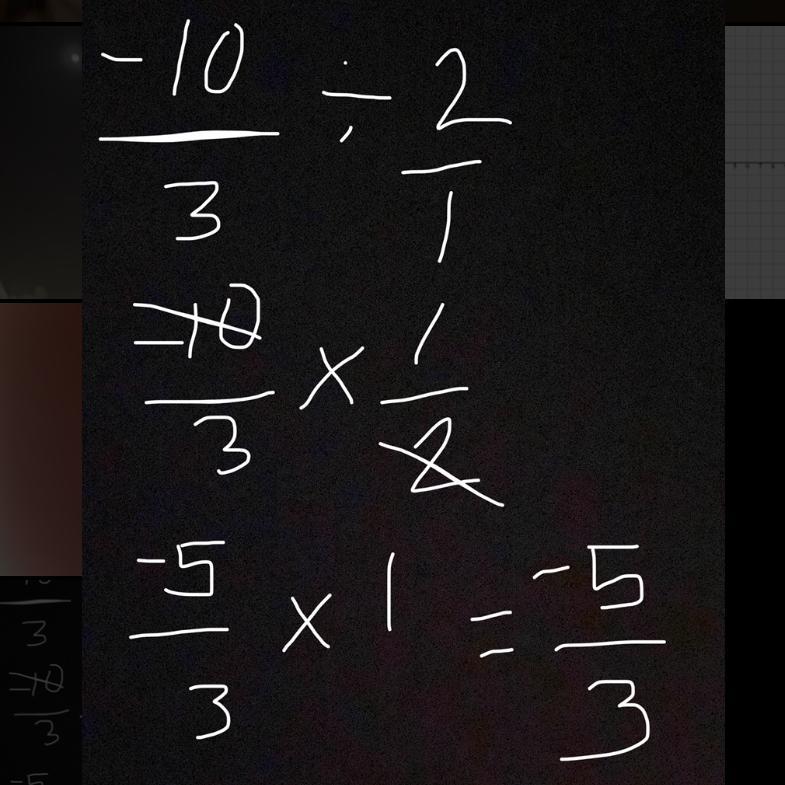 -10/3 ÷ 2/1
-10/3 × 1/2
-5/3 × 1 = -5/3
10
3
-10
3
-5